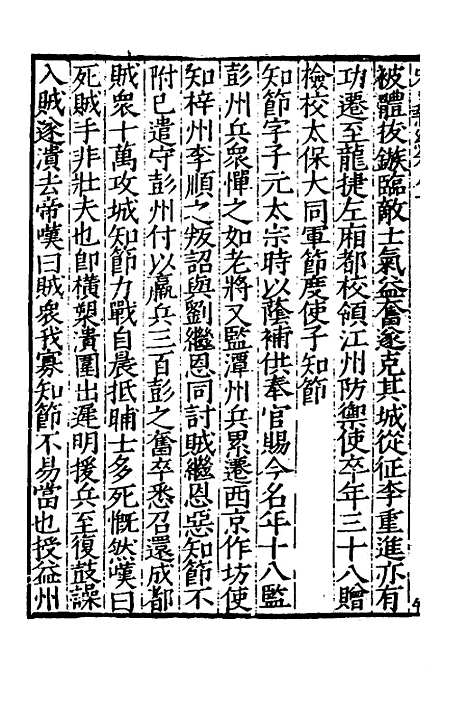 被體拔鏃臨敵士氣益奮遂克其城從征李重進亦有
功遷至龍捷左廂都校領江州防禦使卒年三十八贈
檢校太保大同軍節度使子知節
知節字子元太宗時以蔭補供奉官賜今名年十八監
彭州兵衆憚之如老將又監潭州兵累遷西京作坊使
知梓州李順之叛詔與劉繼恩同討賊繼恩惡知節不
附已遣守彭州付以羸兵三百彭之奮卒悉召還成都
賊衆十萬攻城知節力戰自晨抵晡士多死慨然嘆曰
死賊手非壯夫也卽橫槊潰圍出遲明援兵至復鼓譟
入賊遂潰去帝嘆曰賊衆我寡知節不易當也授益州